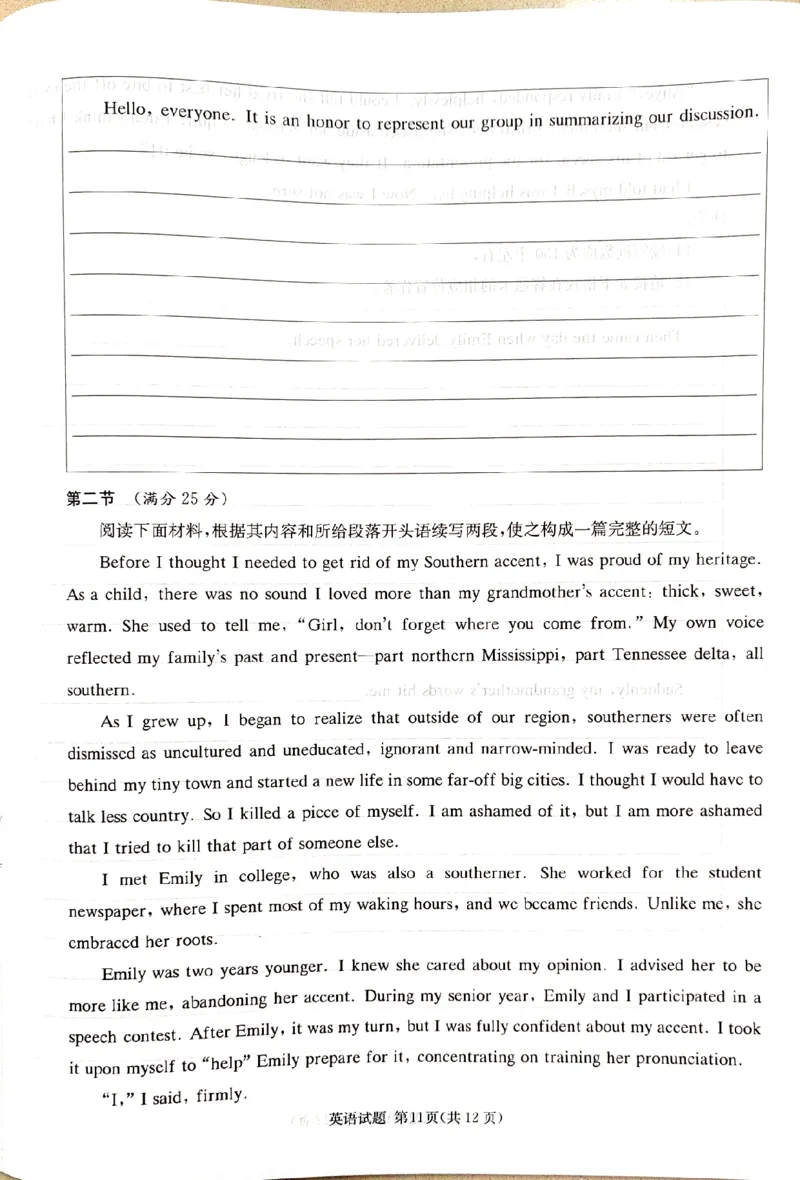 Hello, everyone. It is an honor to represent our group in summarizing our discussion.
第二节 （满分 25 分）
阅读下面材料,根据其内容和所给段落开头语续写两段,使之构成一篇完整的短文。
Before I thought I needed to get rid of my Southern accent, I was proud of my heritage.
As a child, there was no sound I loved more than my grandmother's accent: thick, sweet,
warm. She used to tell me, “Girl, don't forget where you come from.” My own voice
reflected my family's past and present—part northern Mississippi, part Tennessee delta, all
southern.
Suddenly, my grandmother's words hit me.
As I grew up, I began to realize that outside of our region, southerners were often
dismissed as uncultured and uneducated, ignorant and narrow-minded. I was ready to leave
behind my tiny town and started a new life in some far-off big cities. I thought I would have to
talk less country. So I killed a piece of myself. I am ashamed of it, but I am more ashamed
that I tried to kill that part of someone else.
I met Emily in college, who was also a southerner. She worked for the student
newspaper, where I spent most of my waking hours, and we became friends. Unlike me, she
embraced her roots.
Emily was two years younger. I knew she cared about my opinion. I advised her to be
more like me, abandoning her accent. During my senior year, Emily and I participated in a
speech contest. After Emily, it was my turn, but I was fully confident about my accent. I took
it upon myself to “help” Emily prepare for it, concentrating on training her pronunciation.
“I,” I said, firmly.
英语试题 第11页(共 12 页)